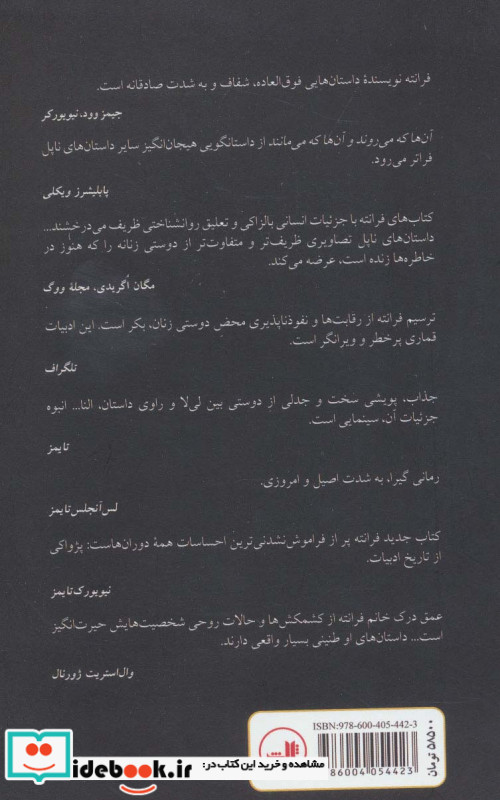 فرانته نویسندهٔ داستان‌هایی فوق‌العاده، شفاف و به شدت صادقانه است.
جیمز وود، نیویورکر
آن‌ها که می‌روند و آن‌ها که می‌مانند از داستانگویی هیجان‌انگیز سایر داستان‌های ناپل
فراتر می‌رود.
پابلیشرز ویکلی
کتاب‌های فرانته با جزئیات انسانی بالزاکی و تعلیق روانشناختی ظریف می‌درخشند...
داستان‌های ناپل تصاویری ظریف‌تر و متفاوت‌تر از دوستی زنانه را که هنوز در
خاطره‌ها زنده است، عرضه می‌کند.
مگان اُگریدی، مجلهٔ ووگ
ترسیم فرانته از رقابت‌ها و نفوذناپذیری محض دوستی زنان، بکر است. این ادبیات
قماری پرخطر و ویرانگر است.
تلگراف
جذاب، پویشی سخت و جدلی از دوستی بین لی‌لا و راوی داستان، النا... انبوه
جزئیات آن، سینمایی است.
تایمز
رمانی گیرا، به شدت اصیل و امروزی.
لس‌آنجلس‌تایمز
کتاب جدید فرانته پر از فراموش‌نشدنی‌ترین احساسات همهٔ دوران‌هاست: پژواکی
از تاریخ ادبیات.
نیویورک‌تایمز
عمق درک خانم فرانته از کشمکش‌ها و حالات روحی شخصیت‌هایش حیرت‌انگیز
است... داستان‌های او طنینی بسیار واقعی دارند.
وال‌استریت ژورنال
ISBN:978-600-405-442-3
86004054423
۵۸۵۰۰ تومان
مشاهده و خرید این کتاب در:
idebook.ir